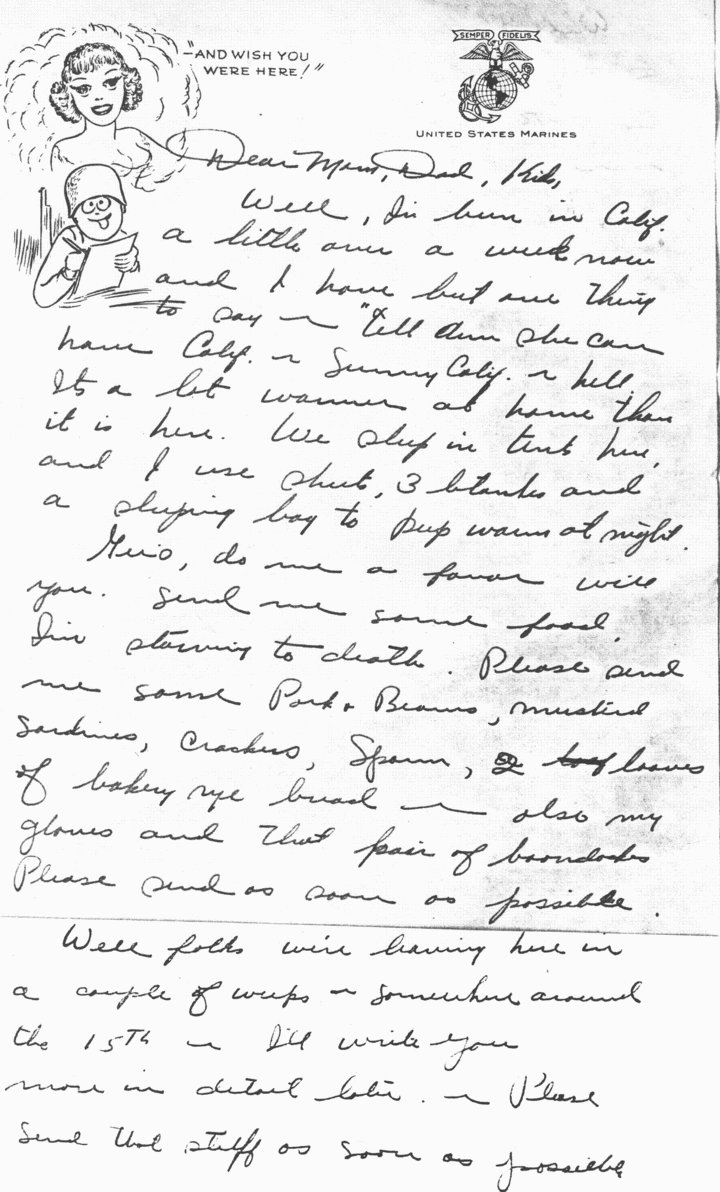 "—AND WISH YOU
WERE HERE!"
SEMPER FIDELIS
UNITED STATES MARINES
Dear Mom, Dad, Kids,
Well, I'v been in Calif.
a little over a week now
and I have but one thing
to say ~ "tell them she can
have Calif. ~ Sunny Calif. ~ hell.
Its a lot warmer at home than
it is here. We sleep in tents here,
and I use sheets, 3 blankets and
a sleeping bag to keep warm at night.
do me a favor will
you. Send me some food.
I'm starving to death. Please send
me some Pork & Beans, mustard
Sardines, Crackers, Spam, 2 loaves
of bakery rye bread ~ also my
gloves and that pair of boondocks
Please send as soon as possible.
Well folks we're leaving here in
a couple of weeks ~ somewhere around
the 15th ~ I'll write you
more in detail later. ~ Please
send that stuff as soon as possible